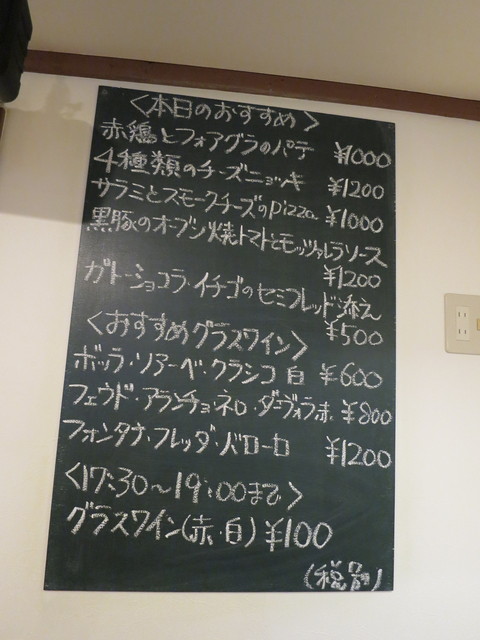 〈本日のおすすめ〉
赤鶏とフォアグラのパテ ¥1000
4種類のチーズニョッキ ¥1200
サラミとスモークチーズのpizza ¥1000
黒豚のオーブン焼トマトとモッツァレラソース
¥1200
ガトーショコラ・イチゴのセミフレッド添え
¥500
〈おすすめグラスワイン〉
ボッラ・ソアーベ・クラシコ 白 ¥600
フェウド・アランチョ・ネロ・ダーヴォラ赤 ¥800
フォンタナ・フレッダ・バローロ ¥1200
〈17:30〜19:00まで〉
グラスワイン(赤・白) ¥100
(税別)